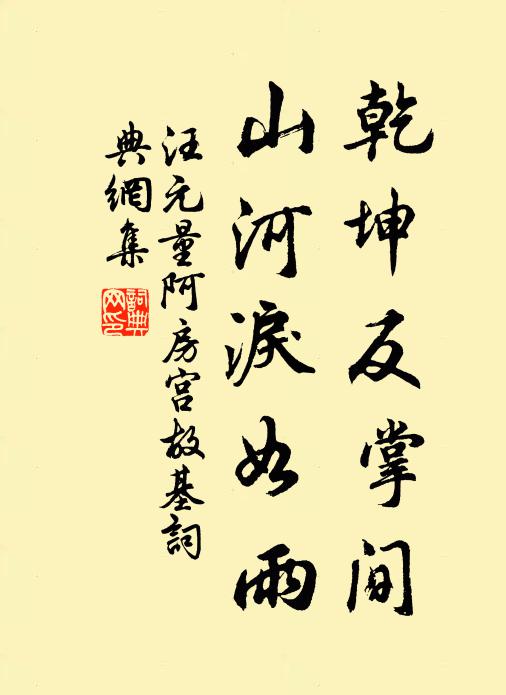 乾坤反掌間
山河淚如雨
汪元量阿房宮故基詞
典網集
詞典
网印